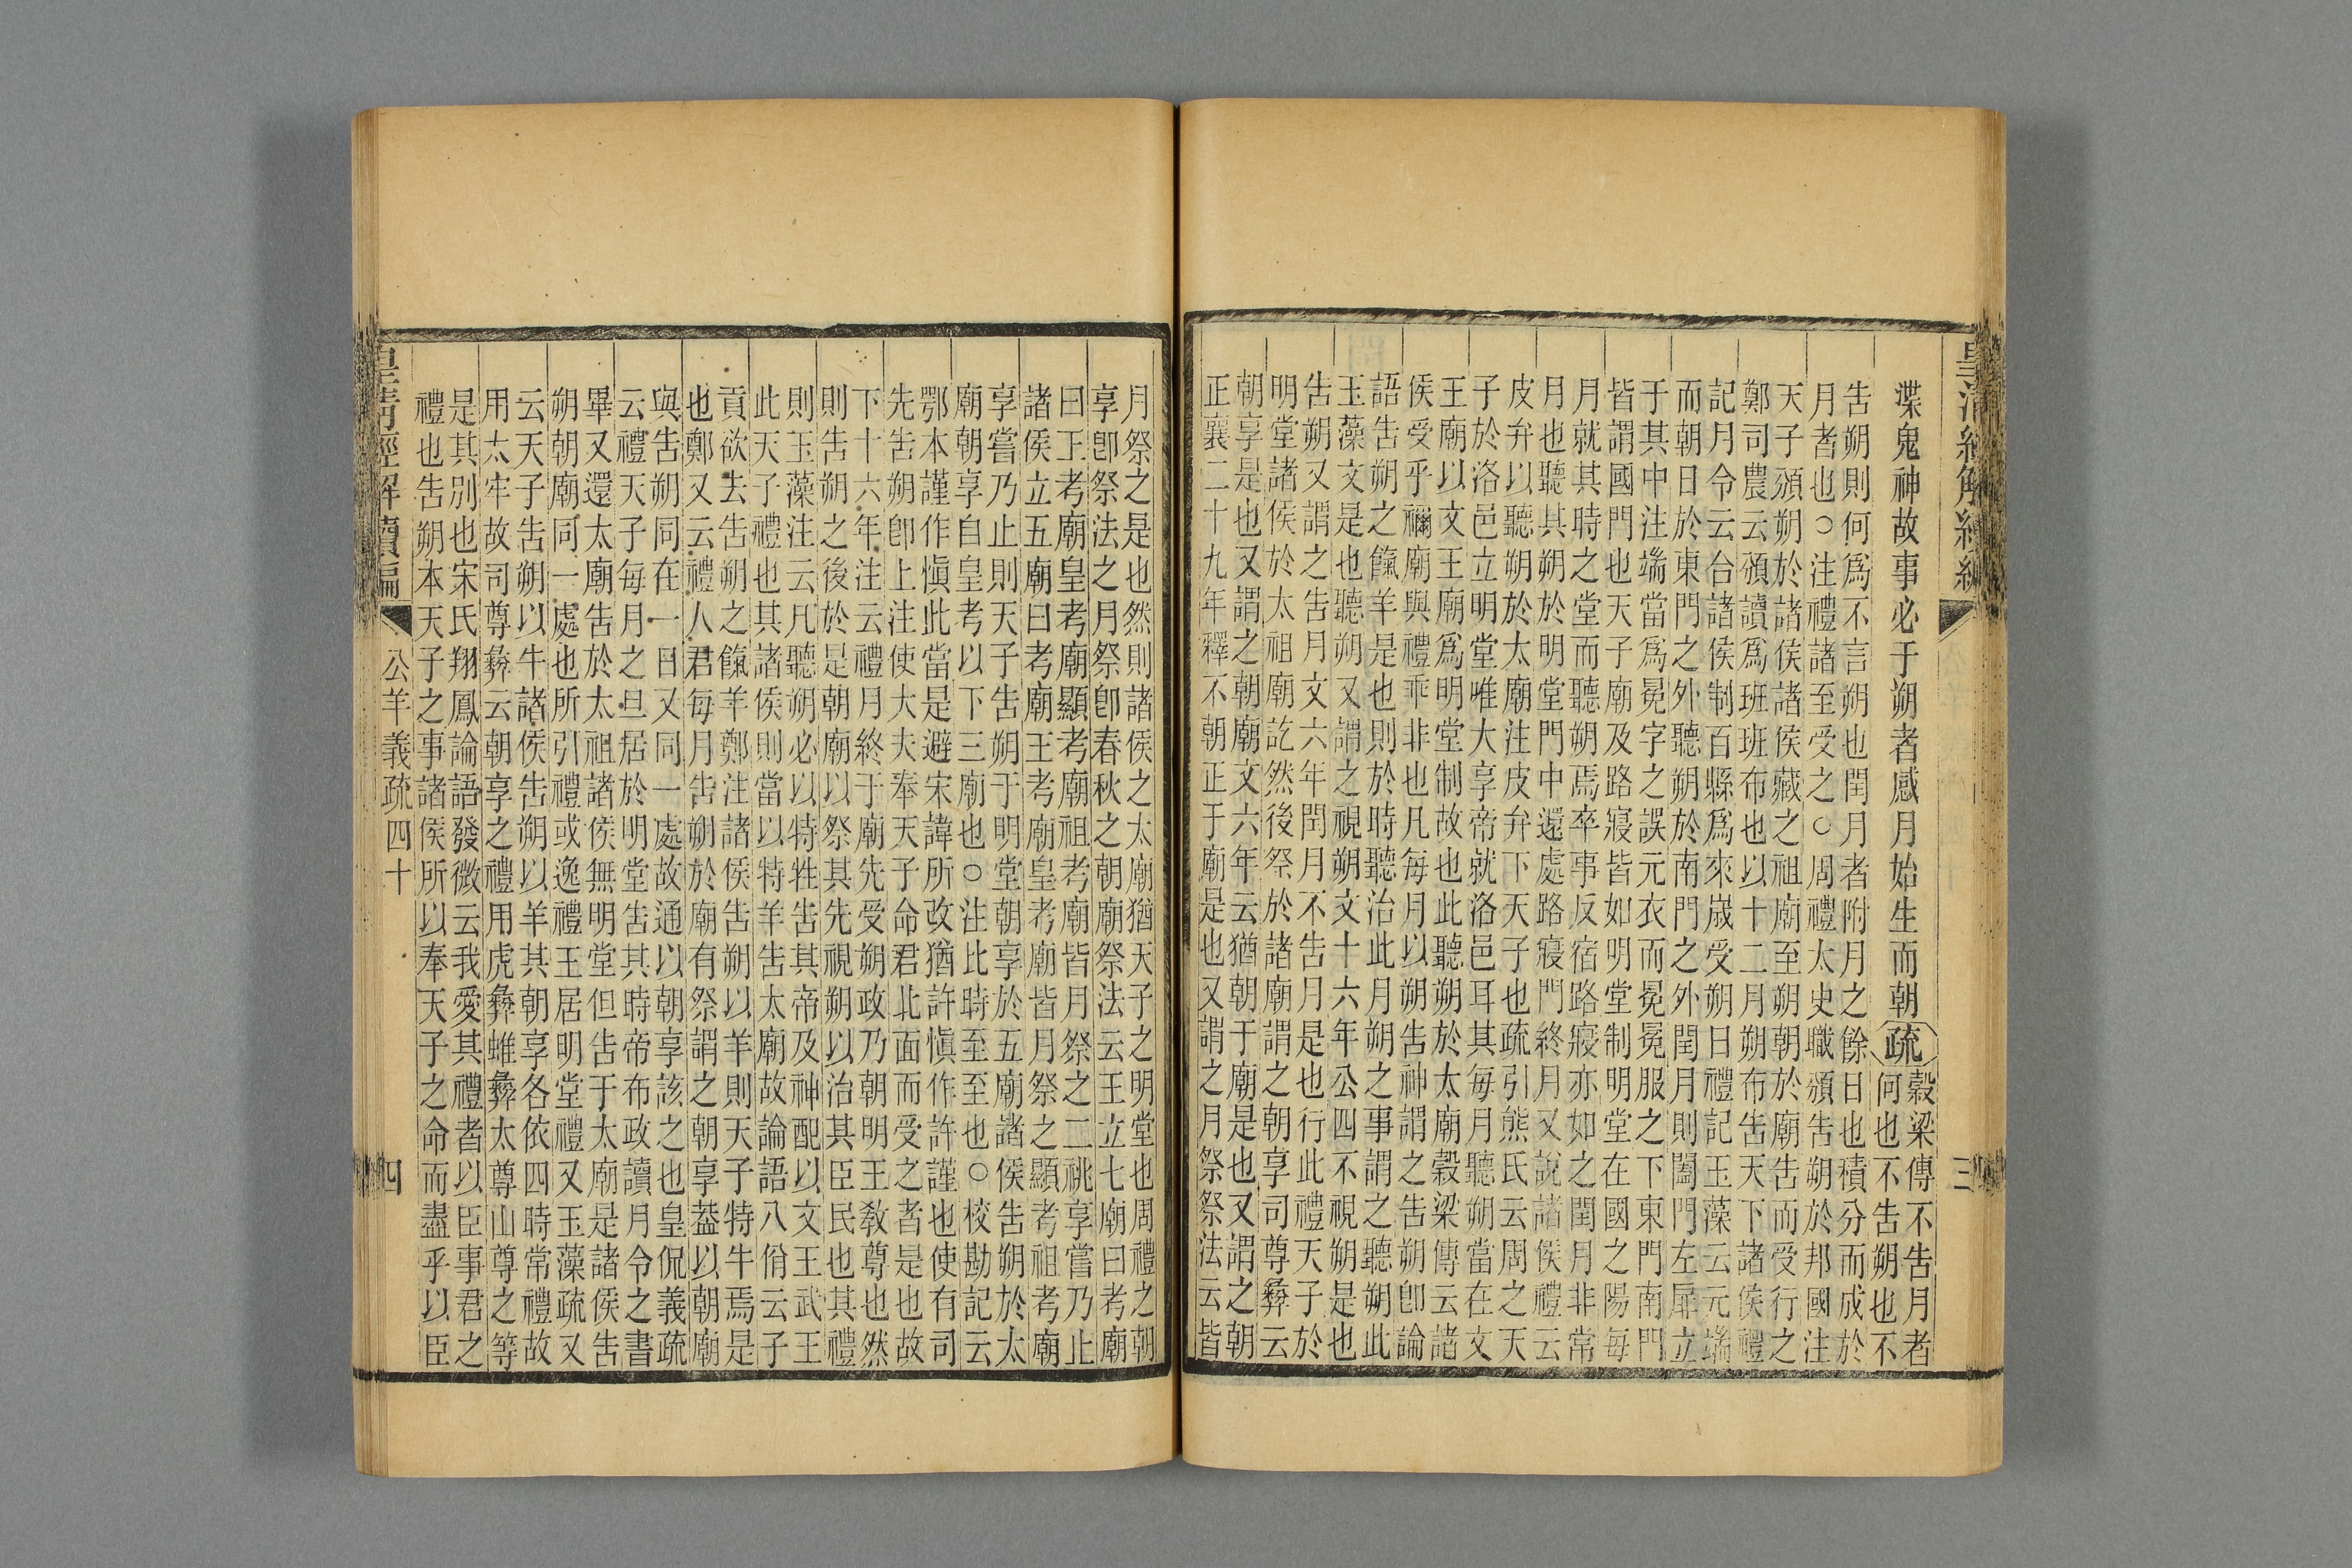 皇清經解續編
三
渫鬼神故事必于朔者感月始生而朝疏
穀梁傳不告月者
何也不告朔也不
告朔則何爲不言朔也閏月者附月之餘日也積分而成於
月者也○注禮諸至受之○周禮太史職頒告朔於邦國注
天子頒朔於諸侯諸侯藏之祖廟至朔朝於廟告而受行之
鄭司農云頒讀爲班班布也以十二月朔布告天下諸侯禮
記月令云合諸侯制百縣爲來歲受朔日禮記玉藻云元端
而朝日於東門之外聽朔於南門之外閏月則闔門左扉立
于其中注端當爲冕字之誤元衣而冕冕服之下東門南門
皆謂國門也天子廟及路寢皆如明堂制明堂在國之陽每
月就其時之堂而聽朔焉卒事反宿路寢亦如之閏月非常
月也聽其朔於明堂門中還處路寢門終月又說諸侯禮云
皮弁以聽朔於太廟注皮弁下天子也疏引熊氏云周之天
子於洛邑立明堂唯大享帝就洛邑耳其每月聽朔當在文
王廟以文王廟爲明堂制故也此聽朔於太廟穀梁傳云諸
侯受乎禰廟與禮乖非也凡每月以朔告神謂之告朔卽論
語告朔之餼羊是也則於時聽治此月朔之事謂之聽朔此
玉藻文是也聽朔又謂之視朔文十六年公四不視朔是也
告朔又謂之告月文六年閏月不告月是也行此禮天子於
明堂諸侯於太祖廟訖然後祭於諸廟謂之朝享司尊彝云
朝享是也又謂之朝廟文六年云猶朝于廟是也又謂之朝
正襄二十九年釋不朝正于廟是也又謂之月祭祭法云皆
月祭之是也然則諸侯之太廟猶天子之明堂也周禮之朝
享卽祭法之月祭卽春秋之朝廟祭法云王立七廟曰考廟
曰王考廟皇考廟顯考廟祖考廟皆月祭之二祧享嘗乃止
諸侯立五廟曰考廟王考廟皇考廟皆月祭之顯考祖考廟
享嘗乃止則天子告朔于明堂朝享於五廟諸侯告朔於太
廟朝享自皇考以下三廟也○注比時至至也○校勘記云
鄂本謹作愼此當是避宋諱所改猶許愼作許謹也使有司
先告朔卽上注使大夫奉天子命君北面而受之者是也故
下十六年注云禮月終于廟先受朔政乃朝明王敎尊也然
則告朔之後於是朝廟以祭其先視朔以治其臣民也其禮
則玉藻注云凡聽朔必以特牲告其帝及神配以文王武王
此天子禮也其諸侯則當以特羊告太廟故論語八佾云子
貢欲去告朔之餼羊鄭注諸侯告朔以羊則天子特牛焉是
也鄭又云禮人君每月告朔於廟有祭謂之朝享葢以朝廟
與告朔同在一日又同一處故通以朝享該之也皇侃義疏
云禮天子每月之旦居於明堂告其時帝布政讀月令之書
畢又還太廟告於太祖諸侯無明堂但告于太廟是諸侯告
朔朝廟同一處也所引禮或逸禮王居明堂禮又玉藻疏又
云天子告朔以牛諸侯告朔以羊其朝享各依四時常禮故
用太牢故司尊彝云朝享之禮用虎彝蜼彝太尊山尊之等
是其別也宋氏翔鳳論語發微云我愛其禮者以臣事君之
禮也告朔本天子之事諸侯所以奉天子之命而盡乎以臣
皇淸經解續編
公羊義疏四十
四